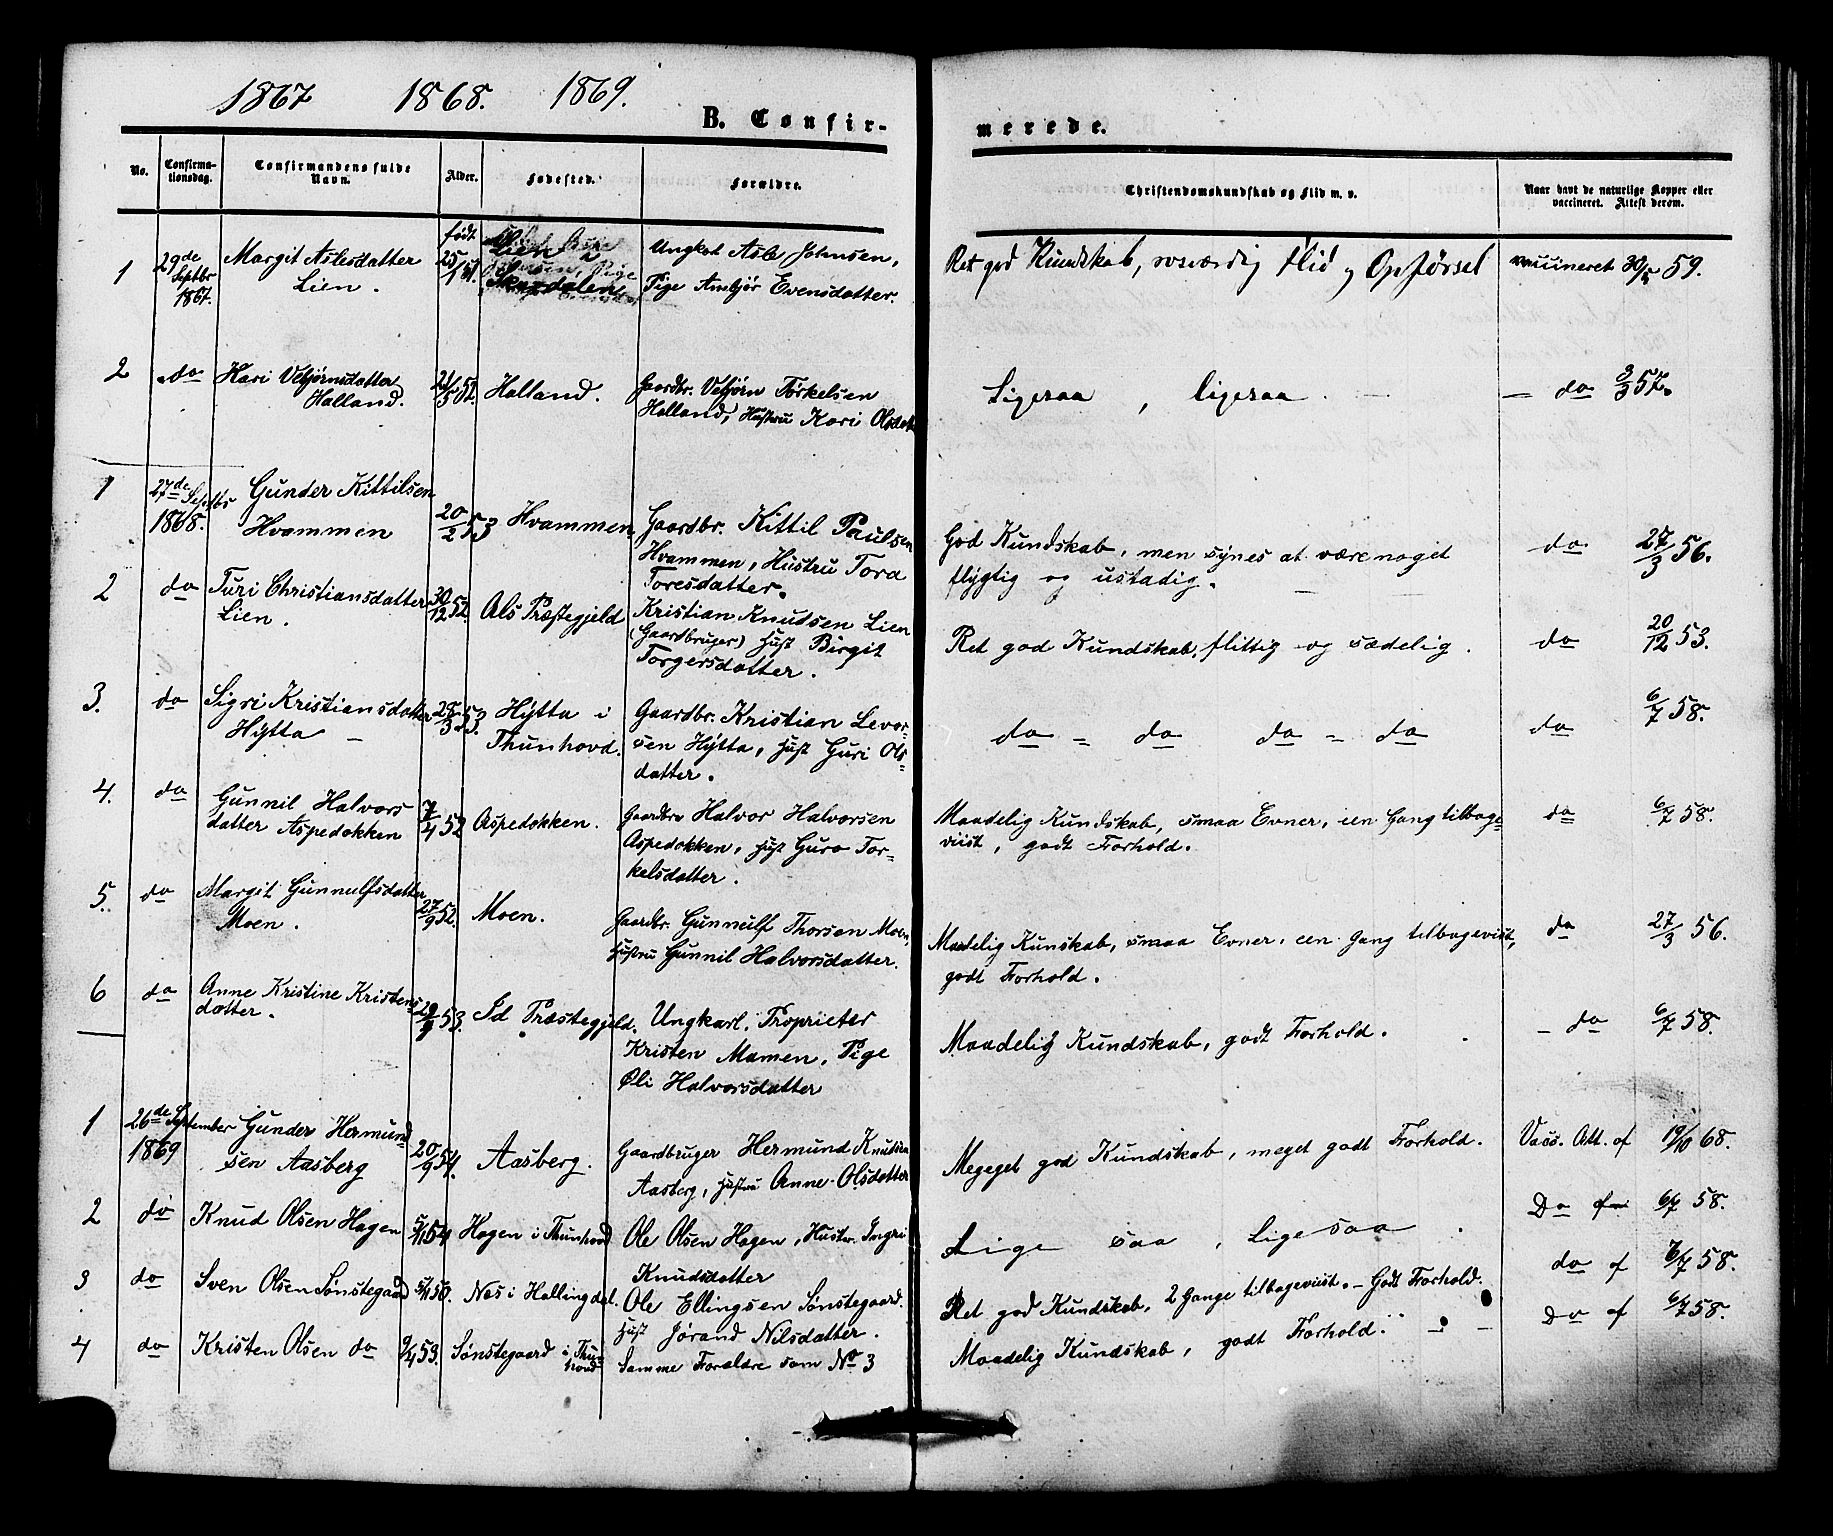 1867 1868. 1869.
B. Confirmerede.
No. Confirmationsdag. Confirmandens fulde Navn. Alder. Fødested. Forældre. Christendomskundskab og Flid m. v. Naar havt de naturlige Kopper eller vaccineret. Attest derom.
1 29de Septbr 1867. Margit Aslesdatter Lien. født 25/1 Lien i Skurdalen Ungkar Asle Johnsen, Pige Ambjør Evensdatter. Ret god Kundskab, rosværdig Flid og Opførsel vaccineret 59.
2 do Kari Vebjørnsdatter Halland. 21/5 52. Halland. Gaardbr. Vebjørn Torkelsen Halland, Hustru Kari Olsdatt Ligesaa, ligesaa. — do 3/3 57.
1 27de Septbr 1868. Gunder Kittilsen Hvammen 20/2 53 Hvammen, Gaardbr. Kittil Paulsen Hvammen, Hustru Tora Toresdatter. God Kundskab, men synes at være noget flygtig og ustadig. do 27/3 56.
2 do Turi Christiansdatter Lien. 30/12 52. Als Præstegjeld Kristian Knudsen Lien (Gaardbruger) Hust Birgit Torgersdatter. Ret god Kundskab, flittig og sædelig. do 20/12 53.
3. do Sigri Kristiansdatter Hytta – 28/3 53. Hytta i Thunhovd. Gaardbr. Kristian Levorsen Hytta, Hust Guri Olsdatter. do = do do = do do 6/7 58.
4. do Gunnil Halvorsdatter Aspedokken 7/4 52 Aspedokken. Gaardbr Halvor Halvorsen Aspedokken, Hust Guro Torkelsdatter. Maadelig Kundskab, smaa Evner, een Gang tilbageviist, godt Forhold. do 6/7 58.
5. do Margit Gunnulfsdatter Moen. 27/9 52. Moen. Gaardbr. Gunnulf Thorsen Moen, Hustru Gunnil Halvorsdatter. Maadelig Kunskab, smaa Evner, een Gang tilbageviist, godt Forhold. do 27/3 56.
6 do Anne Kristine Kristensdatter. 29/9 53. Id Præstegjeld. Ungkarl, Proprietær Kristen Mamen, Pige Øli Halvorsdatter Maadelig Kundskab, godt Forhold. – do 6/7 58.
1 26de September 1869 Gunder Hermundsen Aasberg 20/9 54. Aasberg. Gaardbruger Hermund Knudsen Aasberg, Hustru Anne Olsdatter Megeget god Kundskab, meget godt Forhold. Vacs. Att. af 19/10 68.
2 do Knud Olsen Hagen 5/11 54 Hagen i Thunhovd Ole Olsen Hagen, Hustr. Ingri Knudsdatter Lige saa, Lige saa. Do af 6/7 58.
3 do Sven Olsen Sønstegaard 5/11 50. Nes i Hallingdal. Ole Ellingsen Sønstegaard. Hust Jørand Nilsdatter. Ret god Kundskab, 2 Gange tilbageviist. – Godt Forhold. do af 7/7 58.
4 do Kristen Olsen do 9/4 53. Sønstegaard i Thunhovd Samme Forældre som No 3 Maadelig Kundskab, godt Forhold. Do af 6/7 58.